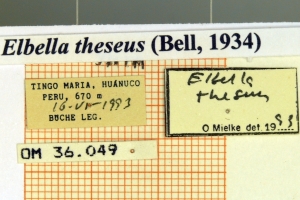 Elbella theseus (Bell, 1934)
TINGO MARIA, HUÁNUCO
PERU, 670 m
BÜCHE LEG.
Elbella
theseus
O Mielke det. 19
OM 36.049